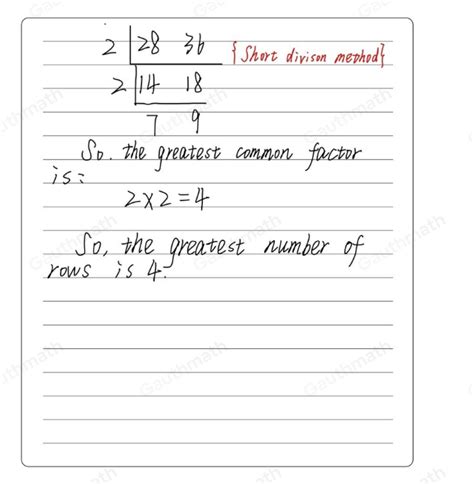 2 28 36 {Short divison method}
2 14 18
7 9
So. the greatest common factor
is:
2×2=4
So, the greatest number of
rows is 4.